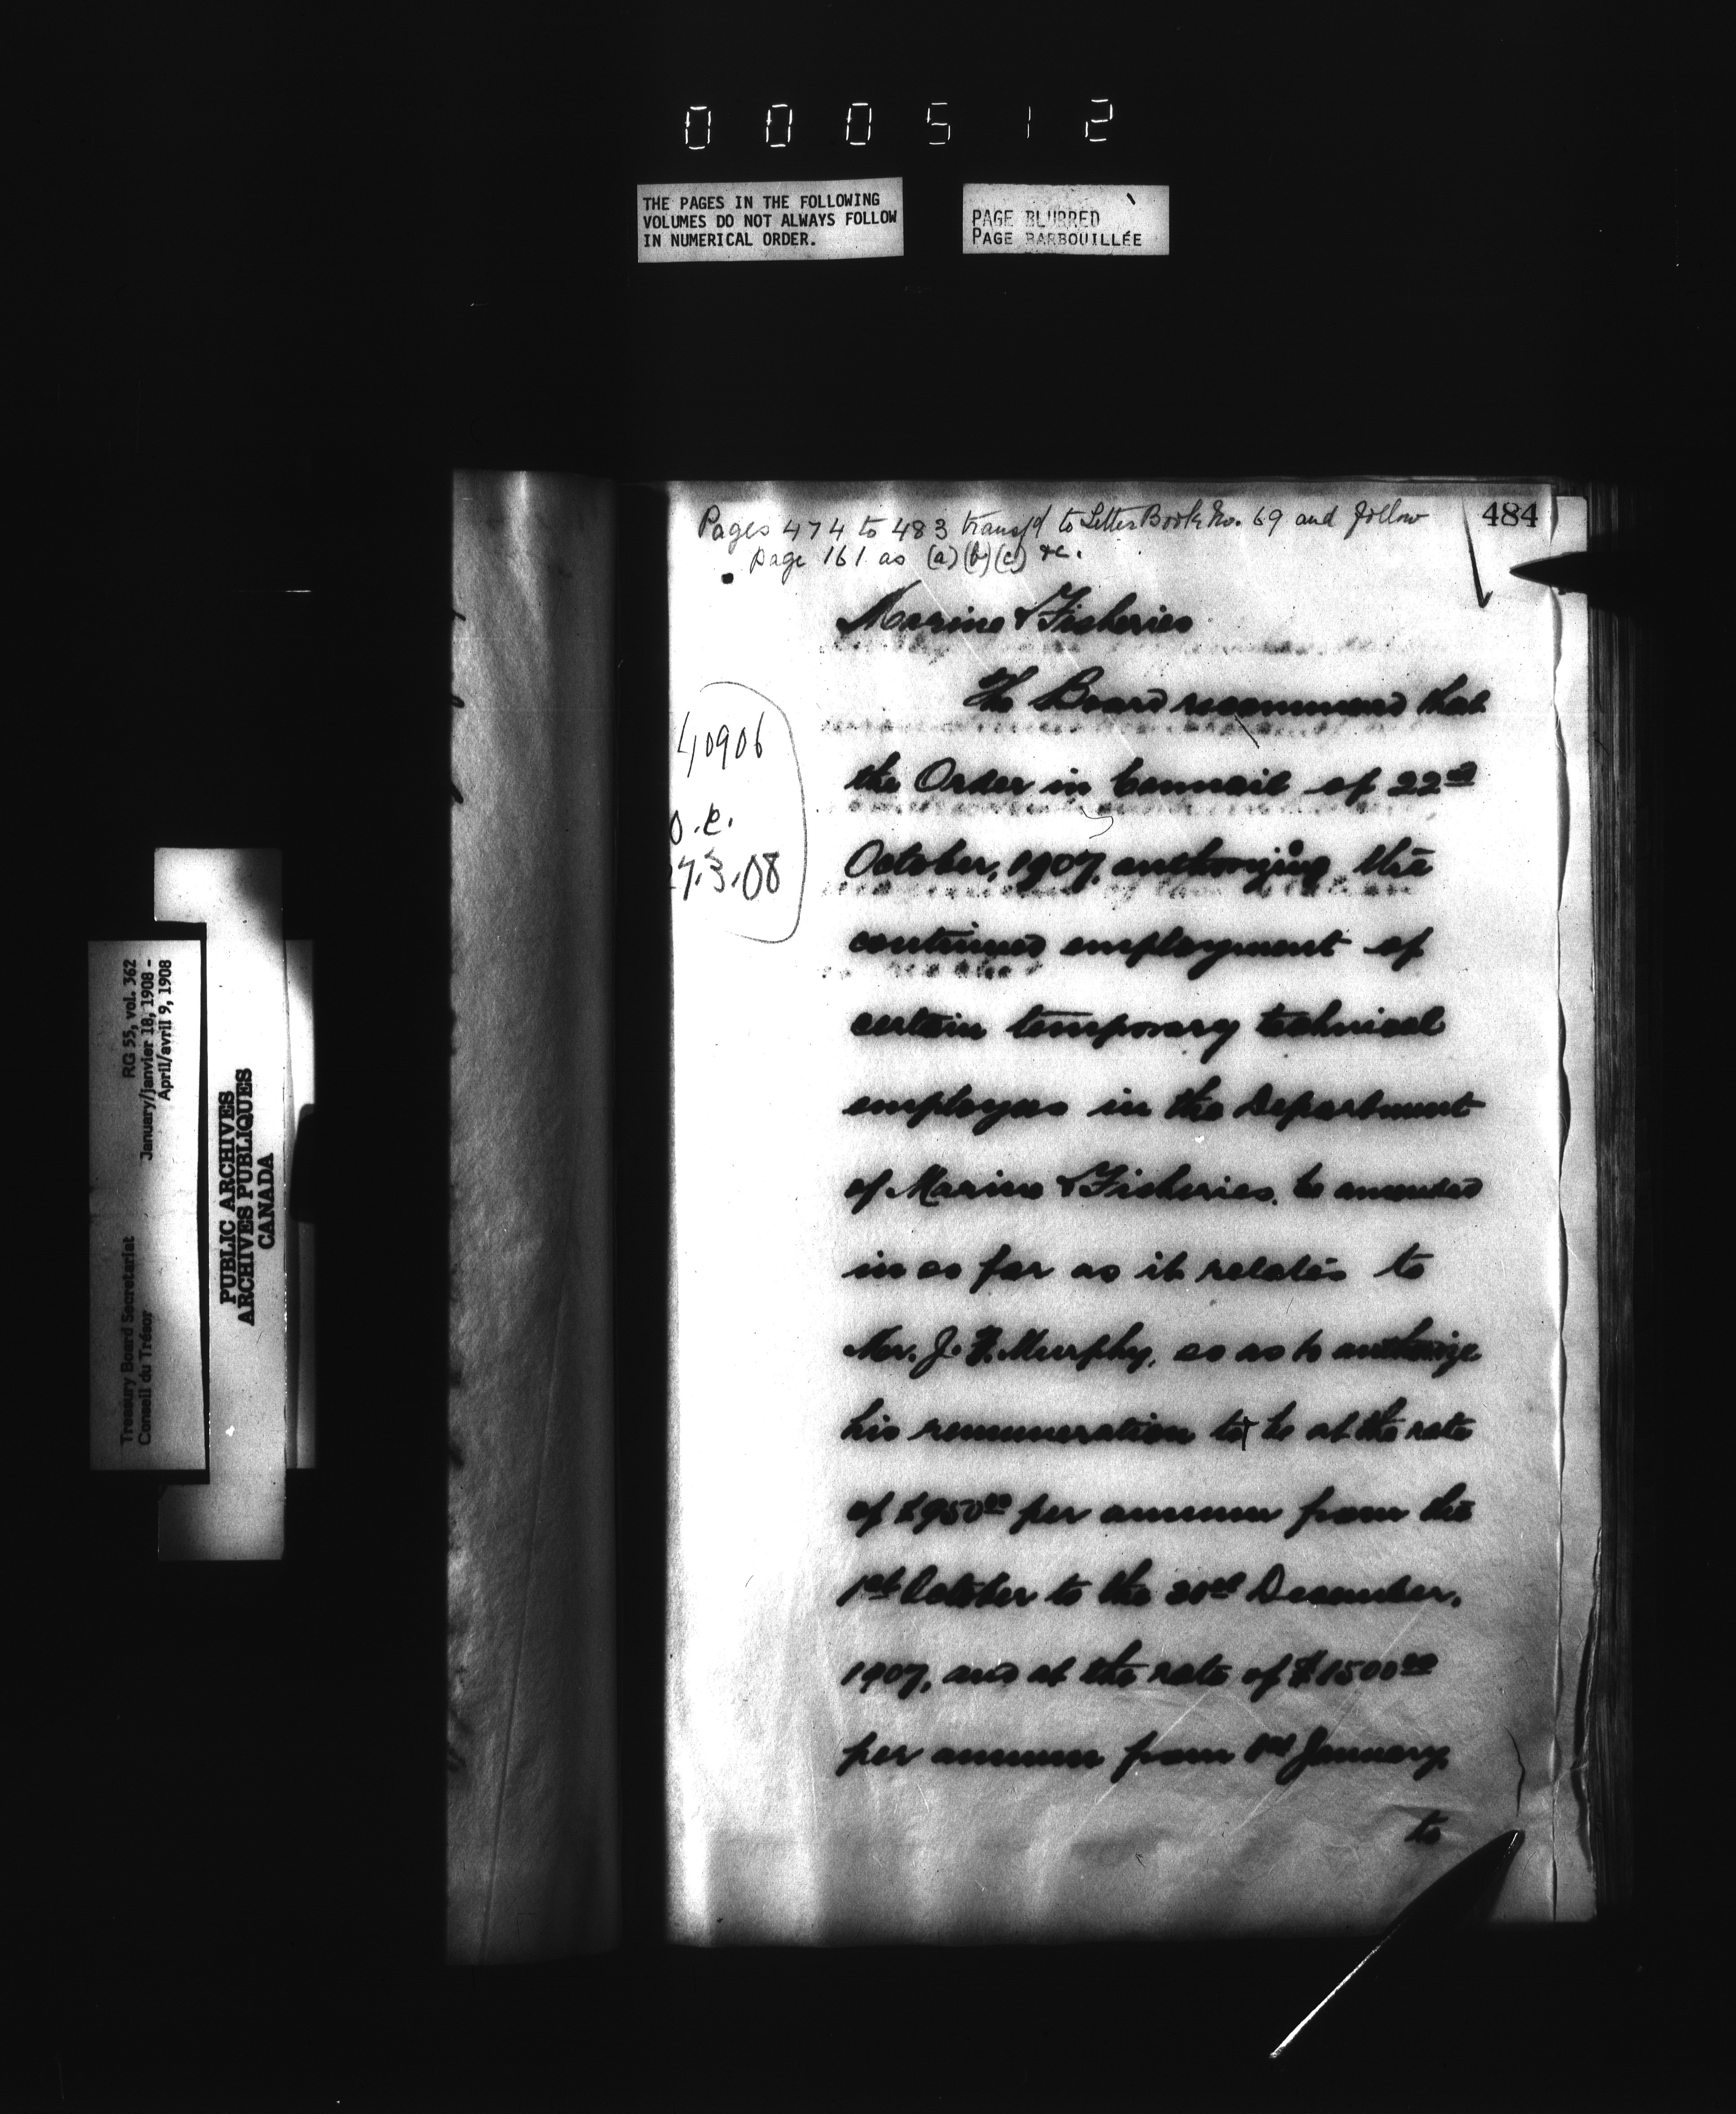 000512
THE PAGES IN THE FOLLOWING
VOLUMES DO NOT ALWAYS FOLLOW
IN NUMERICAL ORDER.
PAGE BLURRED
PAGE BARBOUILLÉE
Pages 474 to 483 transf'd to Letter Book No. 69 and follow
page 161 as (a)(b)(c) &c.
484
Marine & Fisheries
40906
O.C.
27.3.08
The Board recommend that
the Order in Council of 22nd
October, 1907, authorizing the
continued employment of
certain temporary technical
employees in the Department
of Marine & Fisheries, be amended
in so far as it relates to
Mr. J. F. Murphy, so as to authorize
his remuneration to be at the rate
of $950.00 per annum from the
1st October to the 31st December,
1907, and at the rate of $1500.00
per annum from 1st January,
to
Treasury Board Secretariat RG 55, vol. 362
Conseil du Trésor January/janvier 18, 1908 -
April/avril 9, 1908
PUBLIC ARCHIVES
ARCHIVES PUBLIQUES
CANADA